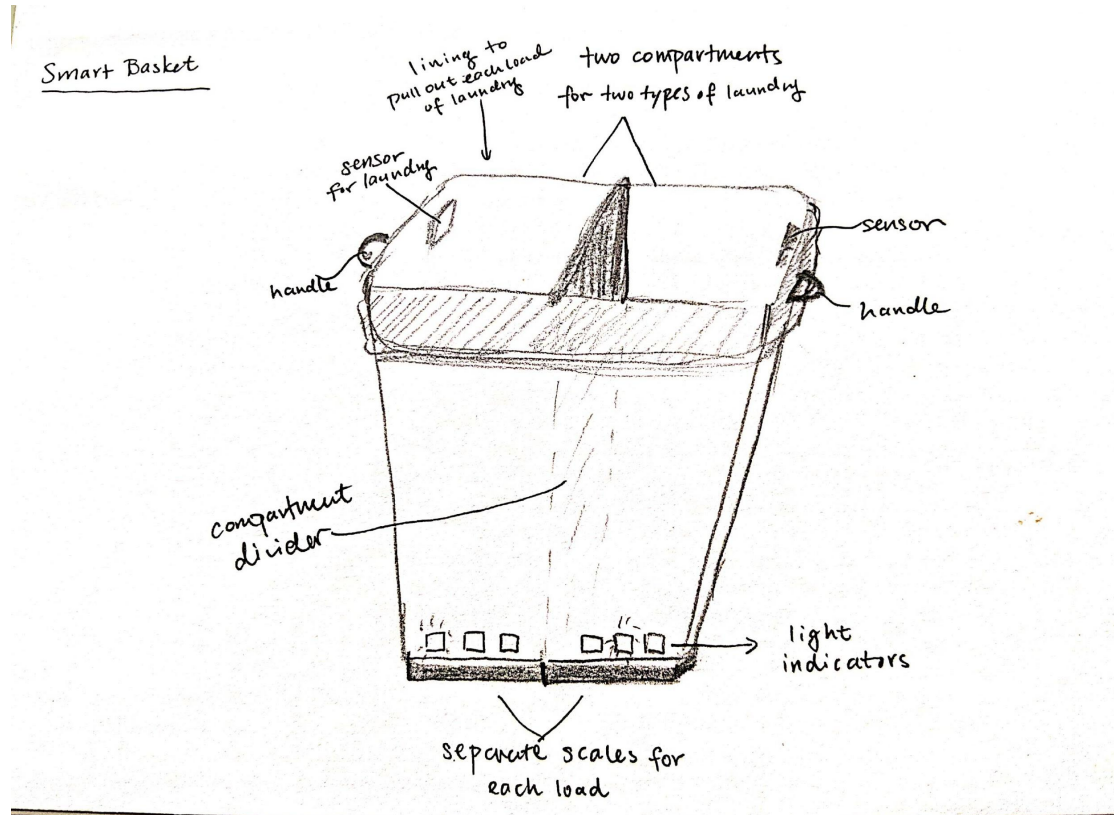 Smart Basket
lining to
pull out each load
of laundry
two compartments
for two types of laundry
sensor
for laundry
sensor
handle
handle
compartment
divider
light
indicators
separate scales for
each load